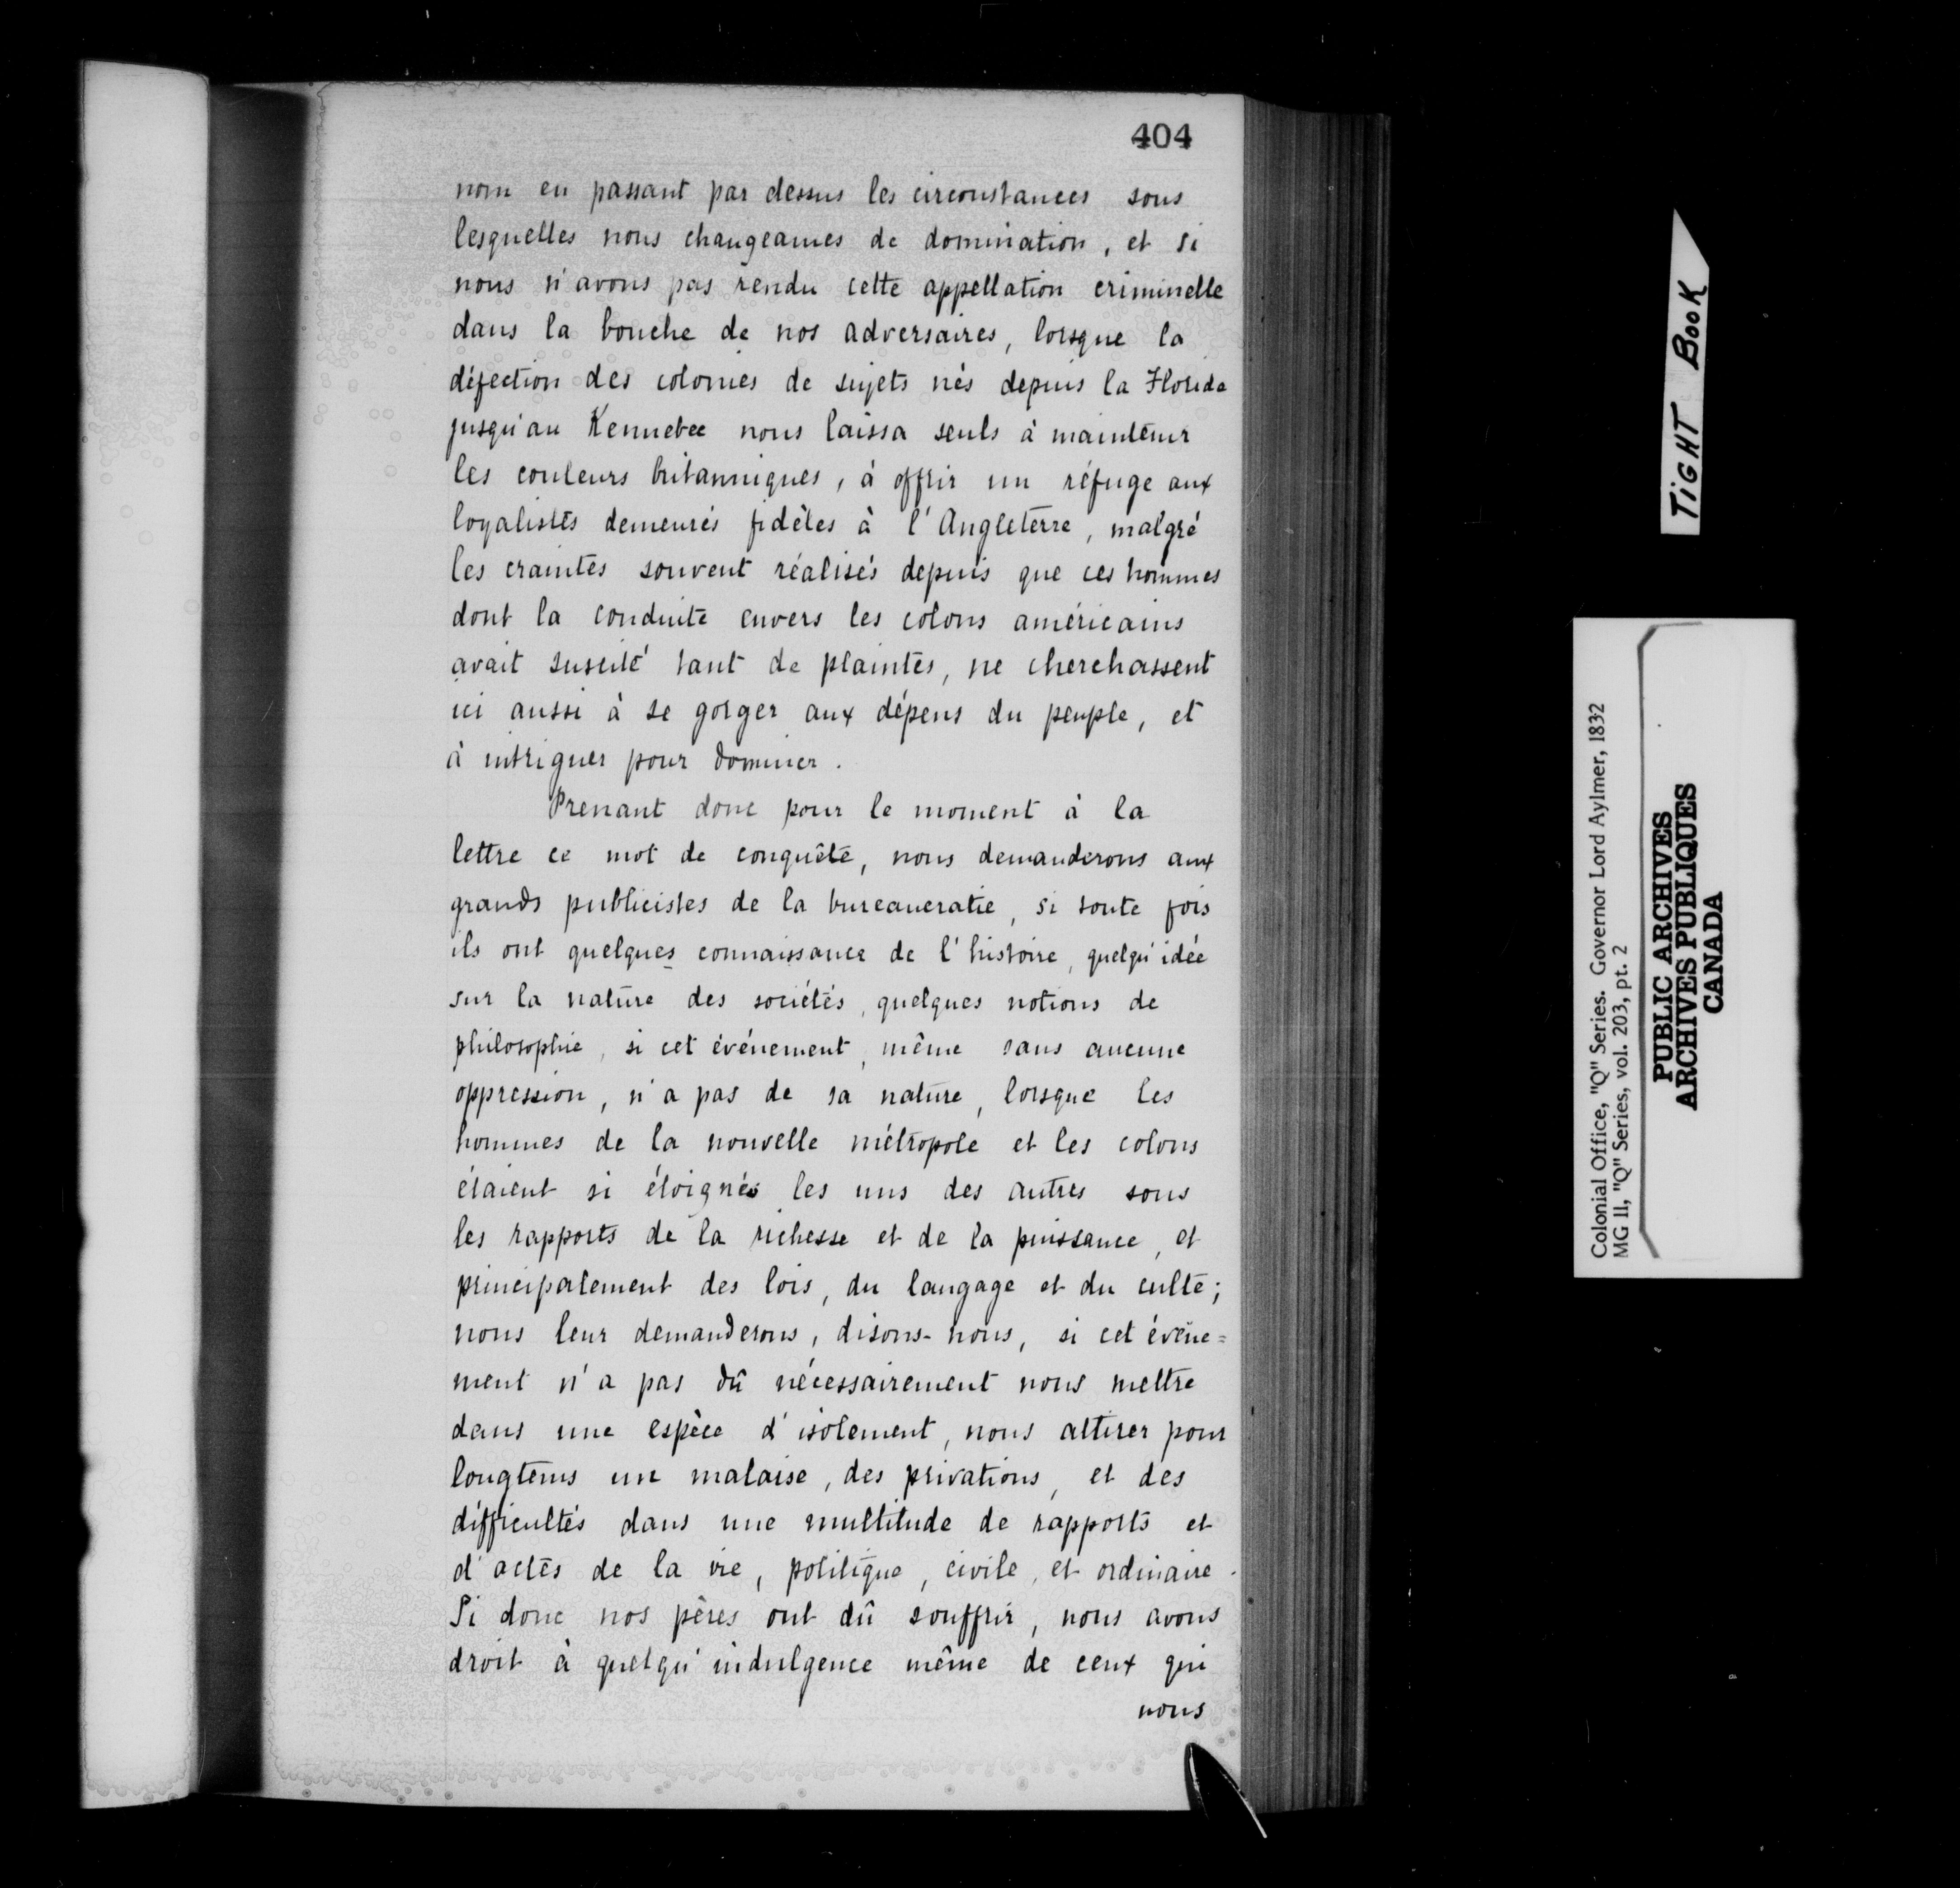 404
nom en passant par dessus les circonstances sous
lesquelles nous changeames de domination, et si
nous n'avons pas rendu cette appellation criminelle
dans la bouche de nos adversaires, lorsque la
défection des colonies de sujets nés depuis la Floride
jusqu'au Kennebec nous laissa seuls à maintenir
les couleurs britanniques, à offrir un réfuge aux
loyalistes demeurés fidèles à l'Angleterre, malgré
les craintes souvent réalisés depuis que ces hommes
dont la conduite envers les colons américains
avait suscité tant de plaintes, ne cherchassent
ici aussi à se gorger aux dépens du peuple, et
à intriguer pour dominer.
Prenant donc pour le moment à la
lettre ce mot de conquête, nous demanderons aux
grands publicistes de la bureaucratie, si toute fois
ils ont quelques connaissance de l'histoire, quelqu'idée
sur la nature des sociétés, quelques notions de
philosophie, si cet événement, même sans aucune
oppression, n'a pas de sa nature, lorsque les
hommes de la nouvelle métropole et les colons
étaient si éloignés les uns des autres sous
les rapports de la richesse et de la puissance, et
principalement des lois, du langage et du culte;
nous leur demanderons, disons-nous, si cet évène=
ment n'a pas dû nécessairement nous mettre
dans une espèce d'isolement, nous attirer pour
longtems un malaise, des privations, et des
difficultés dans une multitude de rapports et
d'actes de la vie, politique, civile, et ordinaire.
Si donc nos pères ont dû souffrir, nous avons
droit à quelqu'indulgence même de ceux qui
nous
TIGHT BOOK
Colonial Office, "Q" Series. Governor Lord Aylmer, 1832
MG 11, "Q" Series, vol. 203, pt. 2
PUBLIC ARCHIVES
ARCHIVES PUBLIQUES
CANADA